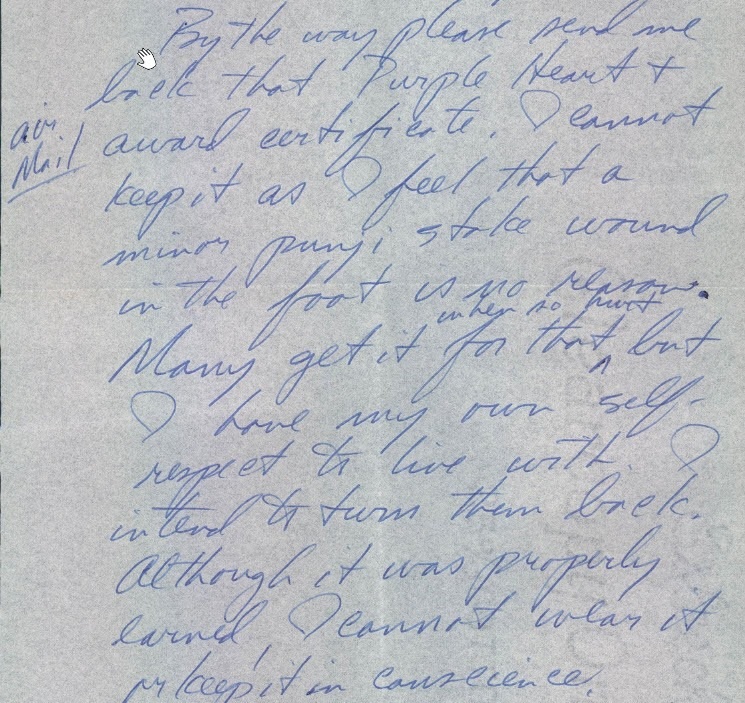 By the way please send me
back that Purple Heart +
air
Mail
award certificate. I cannot
keep it as I feel that a
minor punji stake wound
in the foot is no reason.
when so hurt
Many get it for that ^ but
I have my own self-
respect to live with. I
intend to turn them back.
Although it was properly
earned, I cannot wear it
or keep it in conscience.